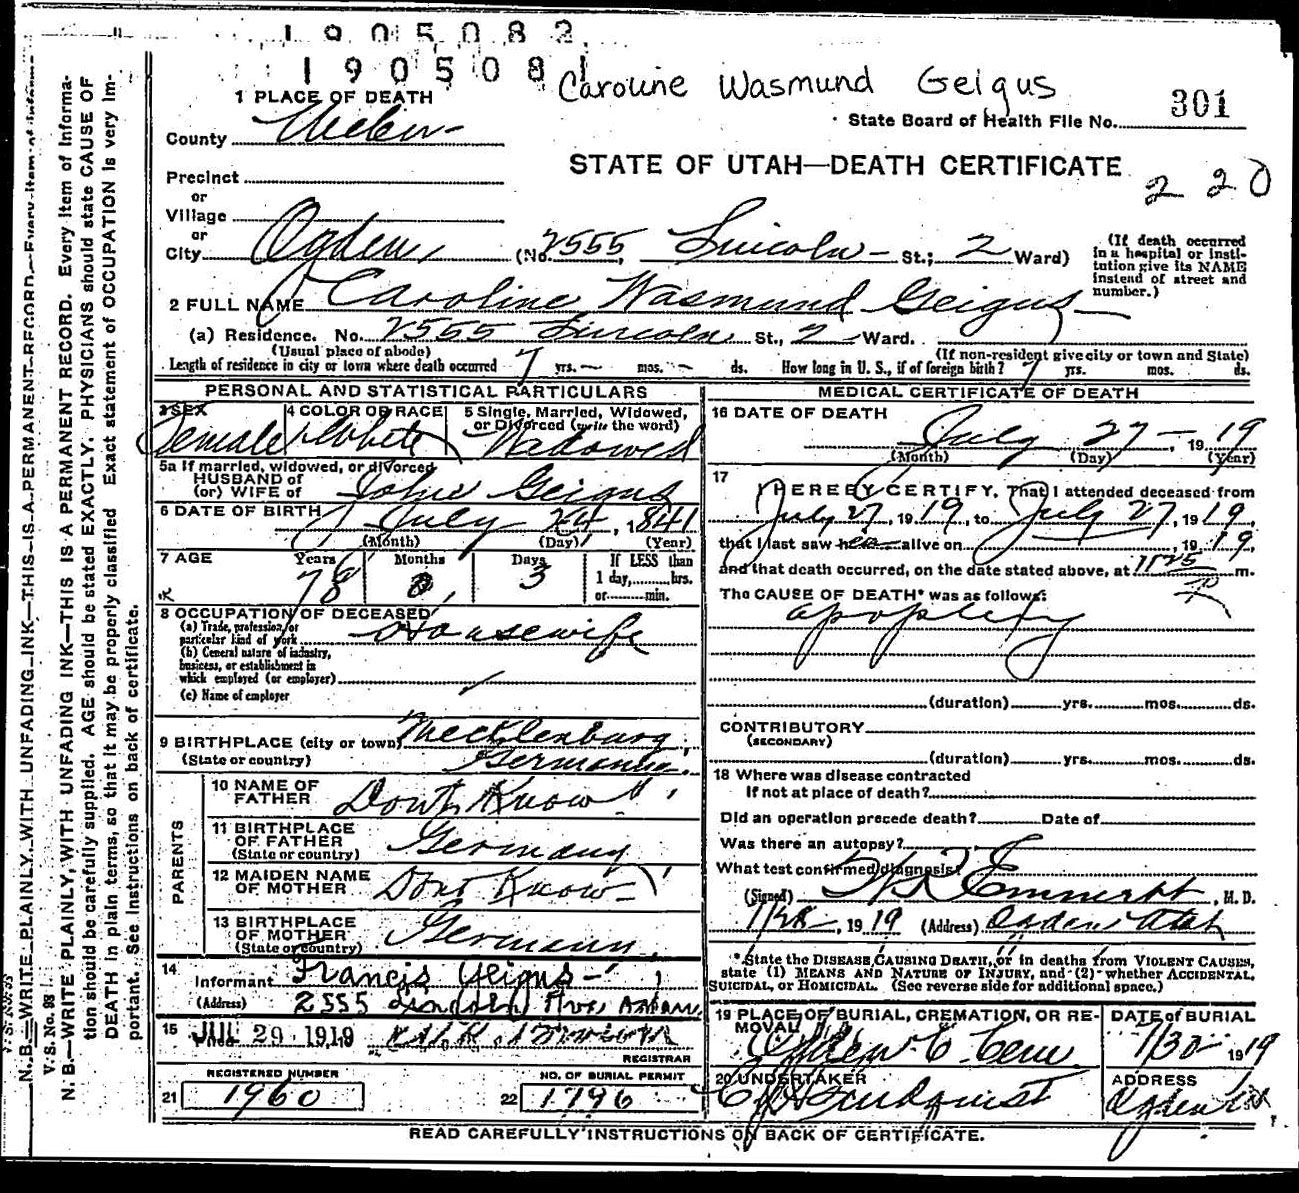 1905082
1905081
Caroline Wasmund Geigus
1 PLACE OF DEATH
301
State Board of Health File No.
County Weber
STATE OF UTAH—DEATH CERTIFICATE
220
Precinct
or
Village
or
City Ogden (No. 2555 Lincoln St.; 2 Ward)
(If death occurred in a hospital or institution give its NAME instead of street and number.)
2 FULL NAME Caroline Wasmund Geigus
(a) Residence. No. 2555 Lincoln St., 2 Ward.
(Usual place of abode) (If non-resident give city or town and State)
Length of residence in city or town where death occurred 7 yrs. — mos. — ds. How long in U. S., if of foreign birth? yrs. mos. ds.
PERSONAL AND STATISTICAL PARTICULARS
3 SEX Female
4 COLOR OR RACE White
5 Single, Married, Widowed, or Divorced (write the word) Widowed
5a If married, widowed, or divorced
HUSBAND of
(or) WIFE of John Geigus
6 DATE OF BIRTH July 24, 1841
(Month) (Day) (Year)
7 AGE Years 78 Months 0 Days 3
If LESS than
1 day, hrs.
or min.
8 OCCUPATION OF DECEASED
(a) Trade, profession, or
particular kind of work Housewife
(b) General nature of industry,
business, or establishment in
which employed (or employer)
(c) Name of employer
9 BIRTHPLACE (city or town) Mecklenburg
(State or country) Germany
PARENTS
10 NAME OF FATHER Dont Know
11 BIRTHPLACE OF FATHER Germany
(State or country)
12 MAIDEN NAME OF MOTHER Dont Know
13 BIRTHPLACE OF MOTHER Germany
(State or country)
14
Informant Francis Geigus
(Address) 2555 Lincoln Ave Ogden
15 JUL 29 1919
REGISTRAR
REGISTERED NUMBER
21 1960
NO. OF BURIAL PERMIT
22 1796
MEDICAL CERTIFICATE OF DEATH
16 DATE OF DEATH
July 27 — 1919
(Month) (Day) (Year)
17
I HEREBY CERTIFY, That I attended deceased from
July 27, 1919, to July 27, 1919,
that I last saw her alive on , 1919,
and that death occurred, on the date stated above, at 1125 P m.
The CAUSE OF DEATH* was as follows:
apoplexy
(duration) yrs. mos. ds.
CONTRIBUTORY
(SECONDARY)
(duration) yrs. mos. ds.
18 Where was disease contracted
If not at place of death?
Did an operation precede death? Date of
Was there an autopsy?
What test confirmed diagnosis?
(Signed) Emmert, M. D.
7/28, 1919 (Address) Ogden Utah
*State the DISEASE CAUSING DEATH, or in deaths from VIOLENT CAUSES,
state (1) MEANS AND NATURE OF INJURY, and (2) whether ACCIDENTAL,
SUICIDAL, or HOMICIDAL. (See reverse side for additional space.)
19 PLACE OF BURIAL, CREMATION, OR REMOVAL
Ogden C. Cem.
DATE of BURIAL
7/30 1919
20 UNDERTAKER
Lindquist
ADDRESS
Ogden Ut
READ CAREFULLY INSTRUCTIONS ON BACK OF CERTIFICATE.
V. S. No. 88
N. B.—WRITE PLAINLY, WITH UNFADING INK—THIS IS A PERMANENT RECORD. Every item of Informa-
tion should be carefully supplied. AGE should be stated EXACTLY. PHYSICIANS should state CAUSE OF
DEATH in plain terms, so that it may be properly classified. Exact statement of OCCUPATION is very im-
portant. See Instructions on back of certificate.